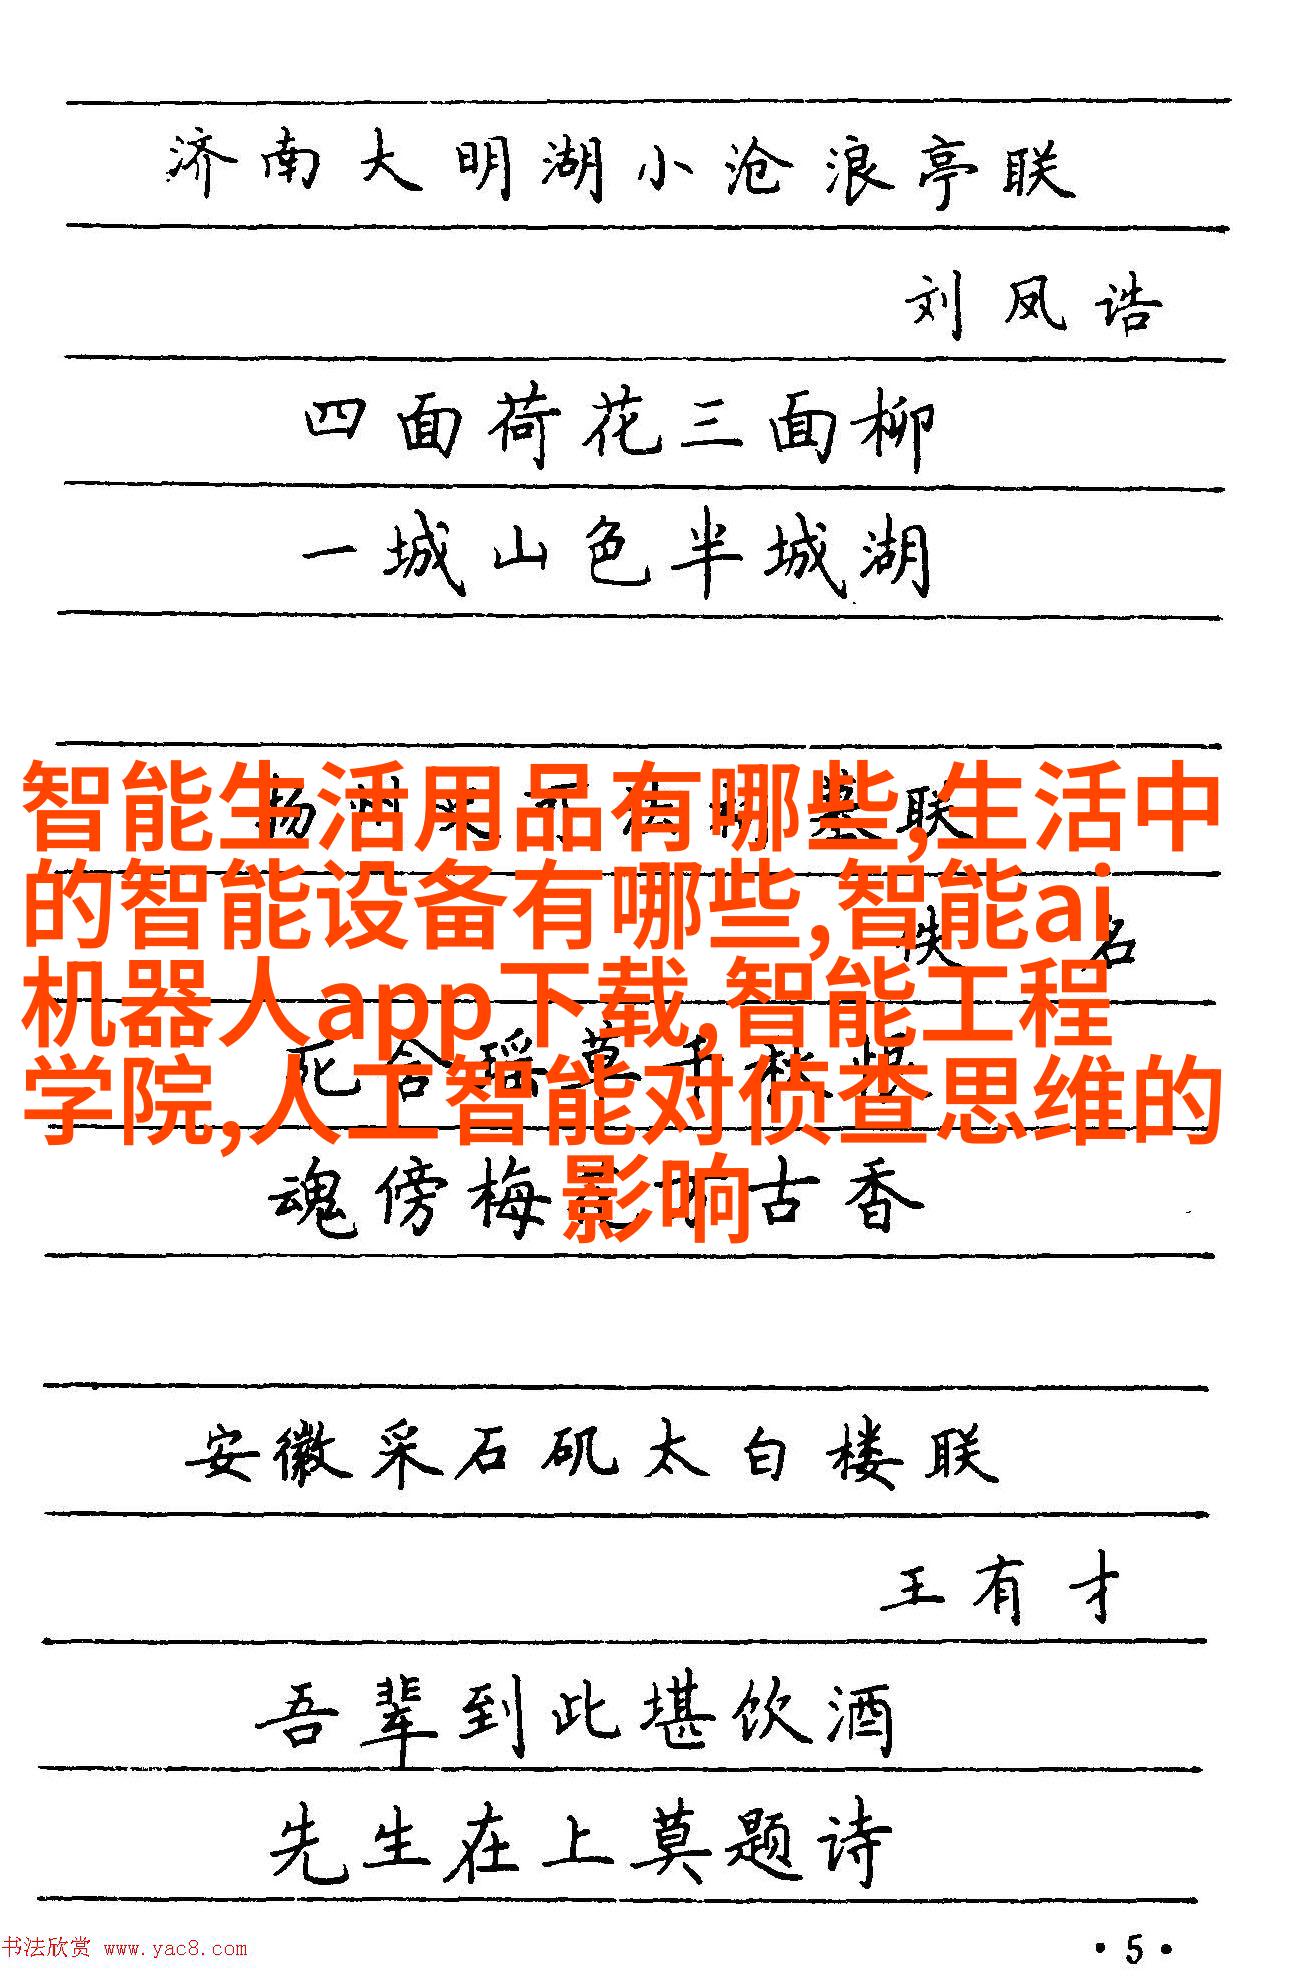 济南大明湖小沧浪亭联
刘凤诰
四面荷花三面柳
一城山色半城湖
智能生活用品有哪些,生活中
的智能设备有哪些,智能ai
机器人app下载,智能工程
学院,人工智能对侦查思维的
影响
联
佚名
魂傍梅 古香
安徽采石矶太白楼联
王有才
吾辈到此堪饮酒
先生在上莫题诗
书法欣赏 www.yac8.com
·5·